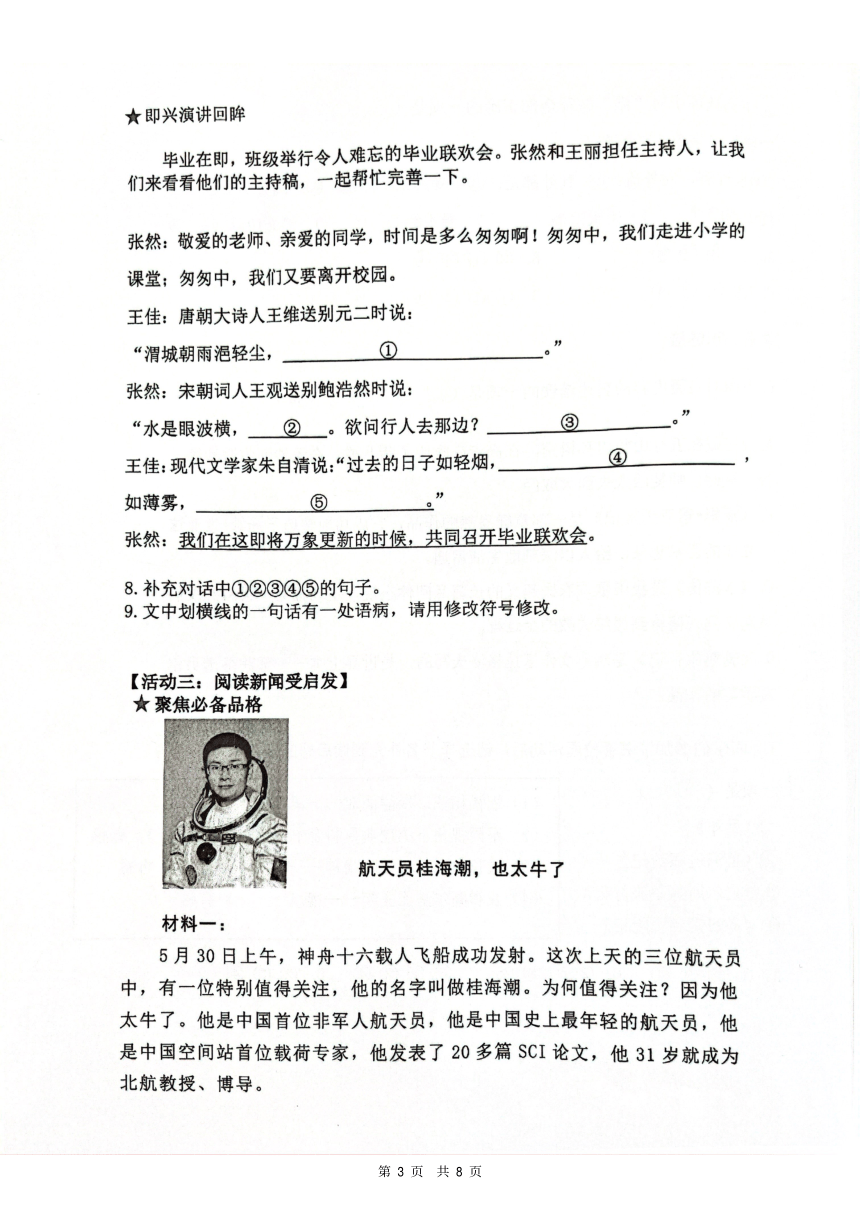 ★即兴演讲回眸
毕业在即，班级举行令人难忘的毕业联欢会。张然和王丽担任主持人，让我
们来看看他们的主持稿，一起帮忙完善一下。
张然：敬爱的老师、亲爱的同学，时间是多么匆匆啊！匆匆中，我们走进小学的
课堂；匆匆中，我们又要离开校园。
王佳：唐朝大诗人王维送别元二时说：
“渭城朝雨浥轻尘，①。”
张然：宋朝词人王观送别鲍浩然时说：
“水是眼波横，②。欲问行人去那边？③。”
王佳：现代文学家朱自清说：“过去的日子如轻烟，④，
如薄雾，⑤。”
张然：我们在这即将万象更新的时候，共同召开毕业联欢会。
8.补充对话中①②③④⑤的句子。
9.文中划横线的一句话有一处语病，请用修改符号修改。
【活动三：阅读新闻受启发】
★聚焦必备品格
航天员桂海潮，也太牛了
材料一：
5月30日上午，神舟十六载人飞船成功发射。这次上天的三位航天员
中，有一位特别值得关注，他的名字叫做桂海潮。为何值得关注？因为他
太牛了。他是中国首位非军人航天员，他是中国史上最年轻的航天员，他
是中国空间站首位载荷专家，他发表了20多篇SCI论文，他31岁就成为
北航教授、博导。
第 3 页 共 8 页